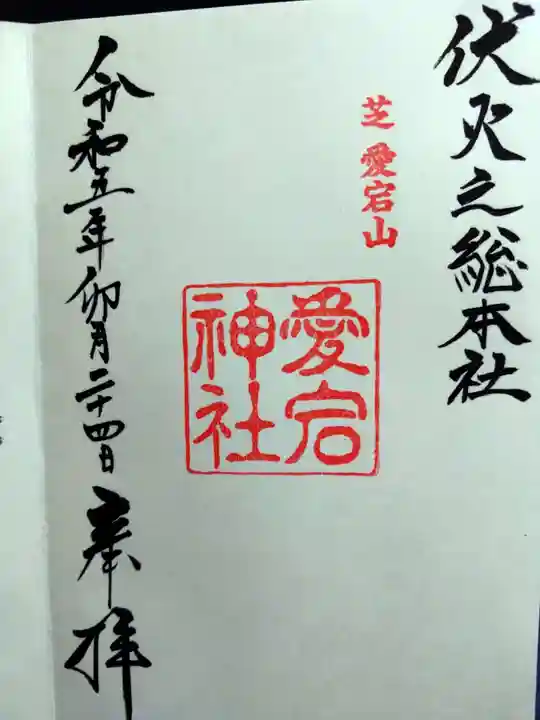 伏火之総本社
芝 愛宕山
愛宕
神社
令和五年 卯月二十四日 奉拝